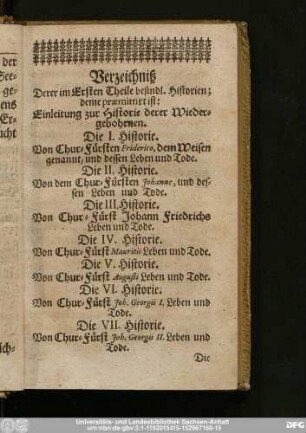 der
ge-
ens
Er-
ucht
ich-
Verzeichniß
Derer im Ersten Theile befindl. Historien;
deme præmittirt ist:
Einleitung zur Historie derer Wieder-
gebohrnen.
Die I. Historie.
Von Chur-Fürsten Friderico, dem Weisen
genannt, und dessen Leben und Tode.
Die II. Historie.
Von dem Chur-Fürsten Johanne, und des-
sen Leben und Tode.
Die III. Historie.
Von Chur-Fürst Johann Friedrichs
Leben und Tode.
Die IV. Historie.
Von Chur-Fürst Mauritii Leben und Tode.
Die V. Historie.
Von Chur-Fürst Augusti Leben und Tode.
Die VI. Historie.
Von Chur-Fürst Joh. Georgii I. Leben und
Tode.
Die VII. Historie.
Von Chur-Fürst Joh. Georgii II. Leben und
Tode.
Die
Universitäts- und Landesbibliothek Sachsen-Anhalt
DFG